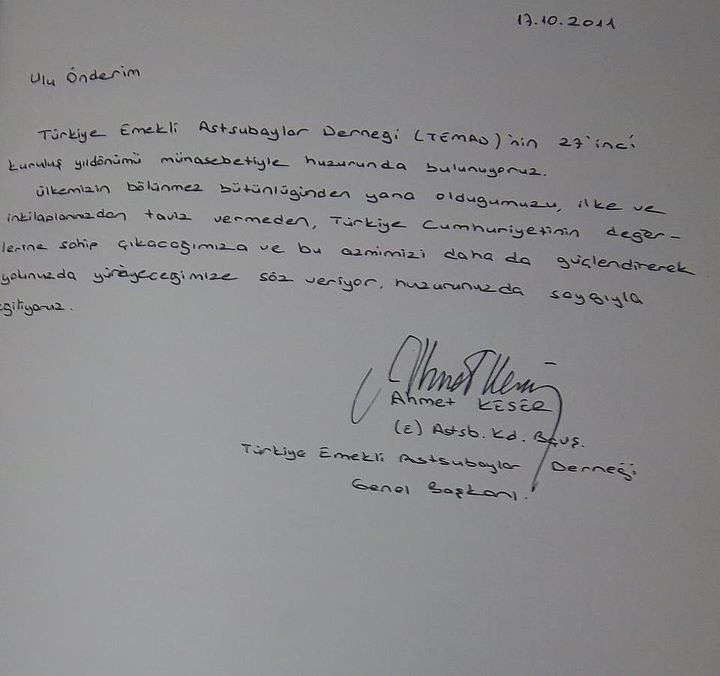 17.10.2011
Ulu Önderim
Türkiye Emekli Astsubaylar Derneği (TEMAD)'nin 27'inci
kuruluş yıldönümü münasebetiyle huzurunda bulunuyoruz.
ülkemizin bölünmez bütünlüğünden yana olduğumuzu, ilke ve
inkilaplarınızdan taviz vermeden, Türkiye Cumhuriyetinin değer-
lerine sahip çıkacağımıza ve bu azmimizi daha da güçlendirerek
yolunuzda yürüyeceğimize söz veriyor, huzurunuzda saygıyla
eğiliyoruz.
Ahmet KESER
(E) Astsb. Kd. Bçvş.
Türkiye Emekli Astsubaylar Derneği
Genel Başkanı.